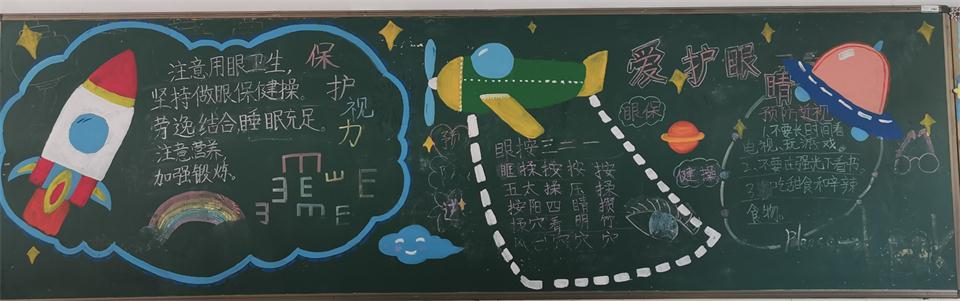 注意用眼卫生，
坚持做眼保健操。
劳逸结合，睡眠充足。
注意营养
加强锻炼。
保
护
视
力
E
爱护眼睛
眼保
健操
眼按三二一
眶揉按按按
五太揉压揉
按阳四睛攒
揉穴看明竹
风一穴穴穴
预防近视
1.不要长时间看
电视，玩游戏。
2.不要在强光下看书
吃甜食和辛辣
食物。